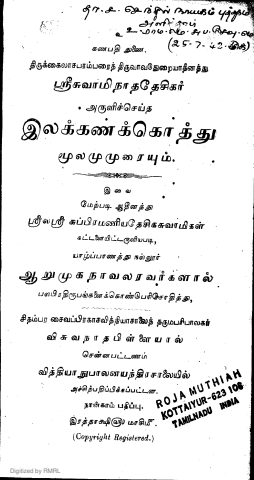 கணபதி துணை.
திருக்கைலாசபரம்பரைத் திருவாவடுதுறையாதீனத்து
ஸ்ரீசுவாமிநாததேசிகர்
அருளிச்செய்த
இலக்கணக்கொத்து
மூலமுமுரையும்.
இவை
மேற்படி ஆதீனத்து
ஸ்ரீலஸ்ரீ சுப்பிரமணியதேசிகசுவாமிகள்
கட்டளையிட்டருளியபடி,
யாழ்ப்பாணத்து நல்லூர்
ஆறுமுகநாவலரவர்களால்
பலபிரதிரூபங்களைக்கொண்டு பரிசோதித்து,
சிதம்பர சைவப்பிரகாசவித்தியாசாலைத் தருமபரிபாலகர்
விசுவநாதபிள்ளையால்
சென்னபட்டணம்
வித்தியாநுபாலனயந்திரசாலையில்
அச்சிற்பதிப்பிக்கப்பட்டன.
நான்காம் பதிப்பு.
இரத்தாக்ஷி௵ மாசிமீ
(Copyright Registered.)
ROJA MUTHIAH
KOTTAIYUR-623 106
TAMILNADU INDIA
Digitized by RMRL